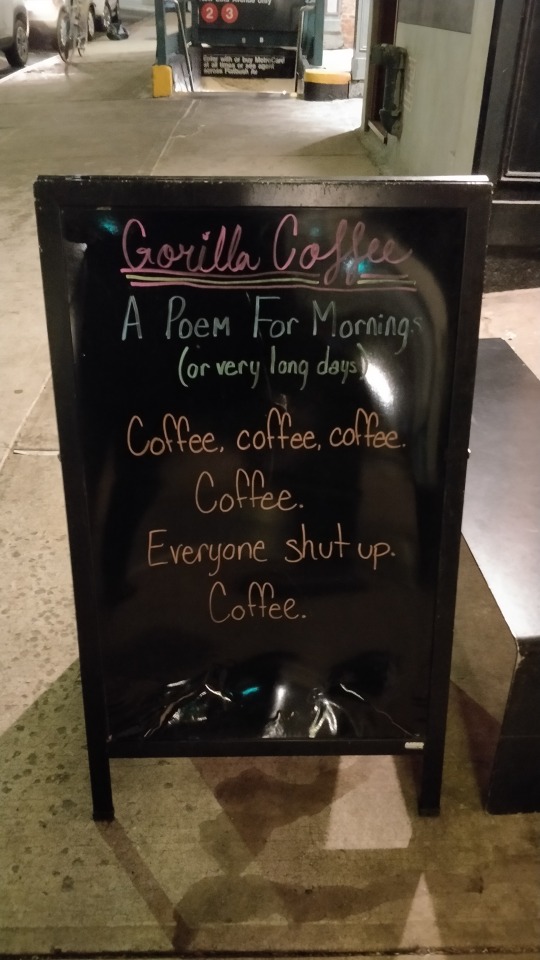 2 3
Enter with or buy MetroCard
at all times or see agent
across Flatbush Av
Gorilla Coffee
A Poem For Mornings
(or very long days)
Coffee, coffee, coffee.
Coffee.
Everyone shut up.
Coffee.